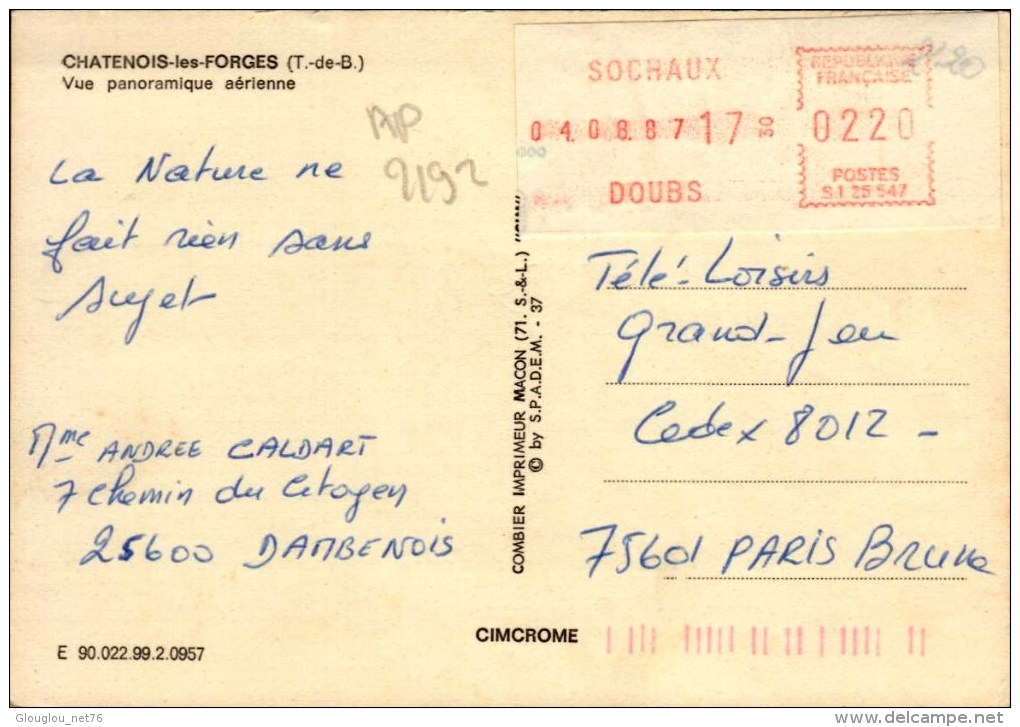 CHATENOIS-les-FORGES (T.-de-B.)
Vue panoramique aérienne
AP
2192
La Nature ne
fait rien sans
sujet
Mme ANDREE CALDART
7 Chemin du Citoyen
25600 DAMBENOIS
E 90.022.99.2.0957
COMBIER IMPRIMEUR MACON (71. S.-&-L.)
© by S.P.A.D.E.M. - 37
CIMCROME
SOCHAUX
04.08.87 17 30
DOUBS
REPUBLIQUE
FRANÇAISE
0220
POSTES
S.I 25 547
Télé-Loisirs
Grand-Jeu
Cedex 8012 -
75601 PARIS Brune
Glouglou_net76
www.delcampe.net